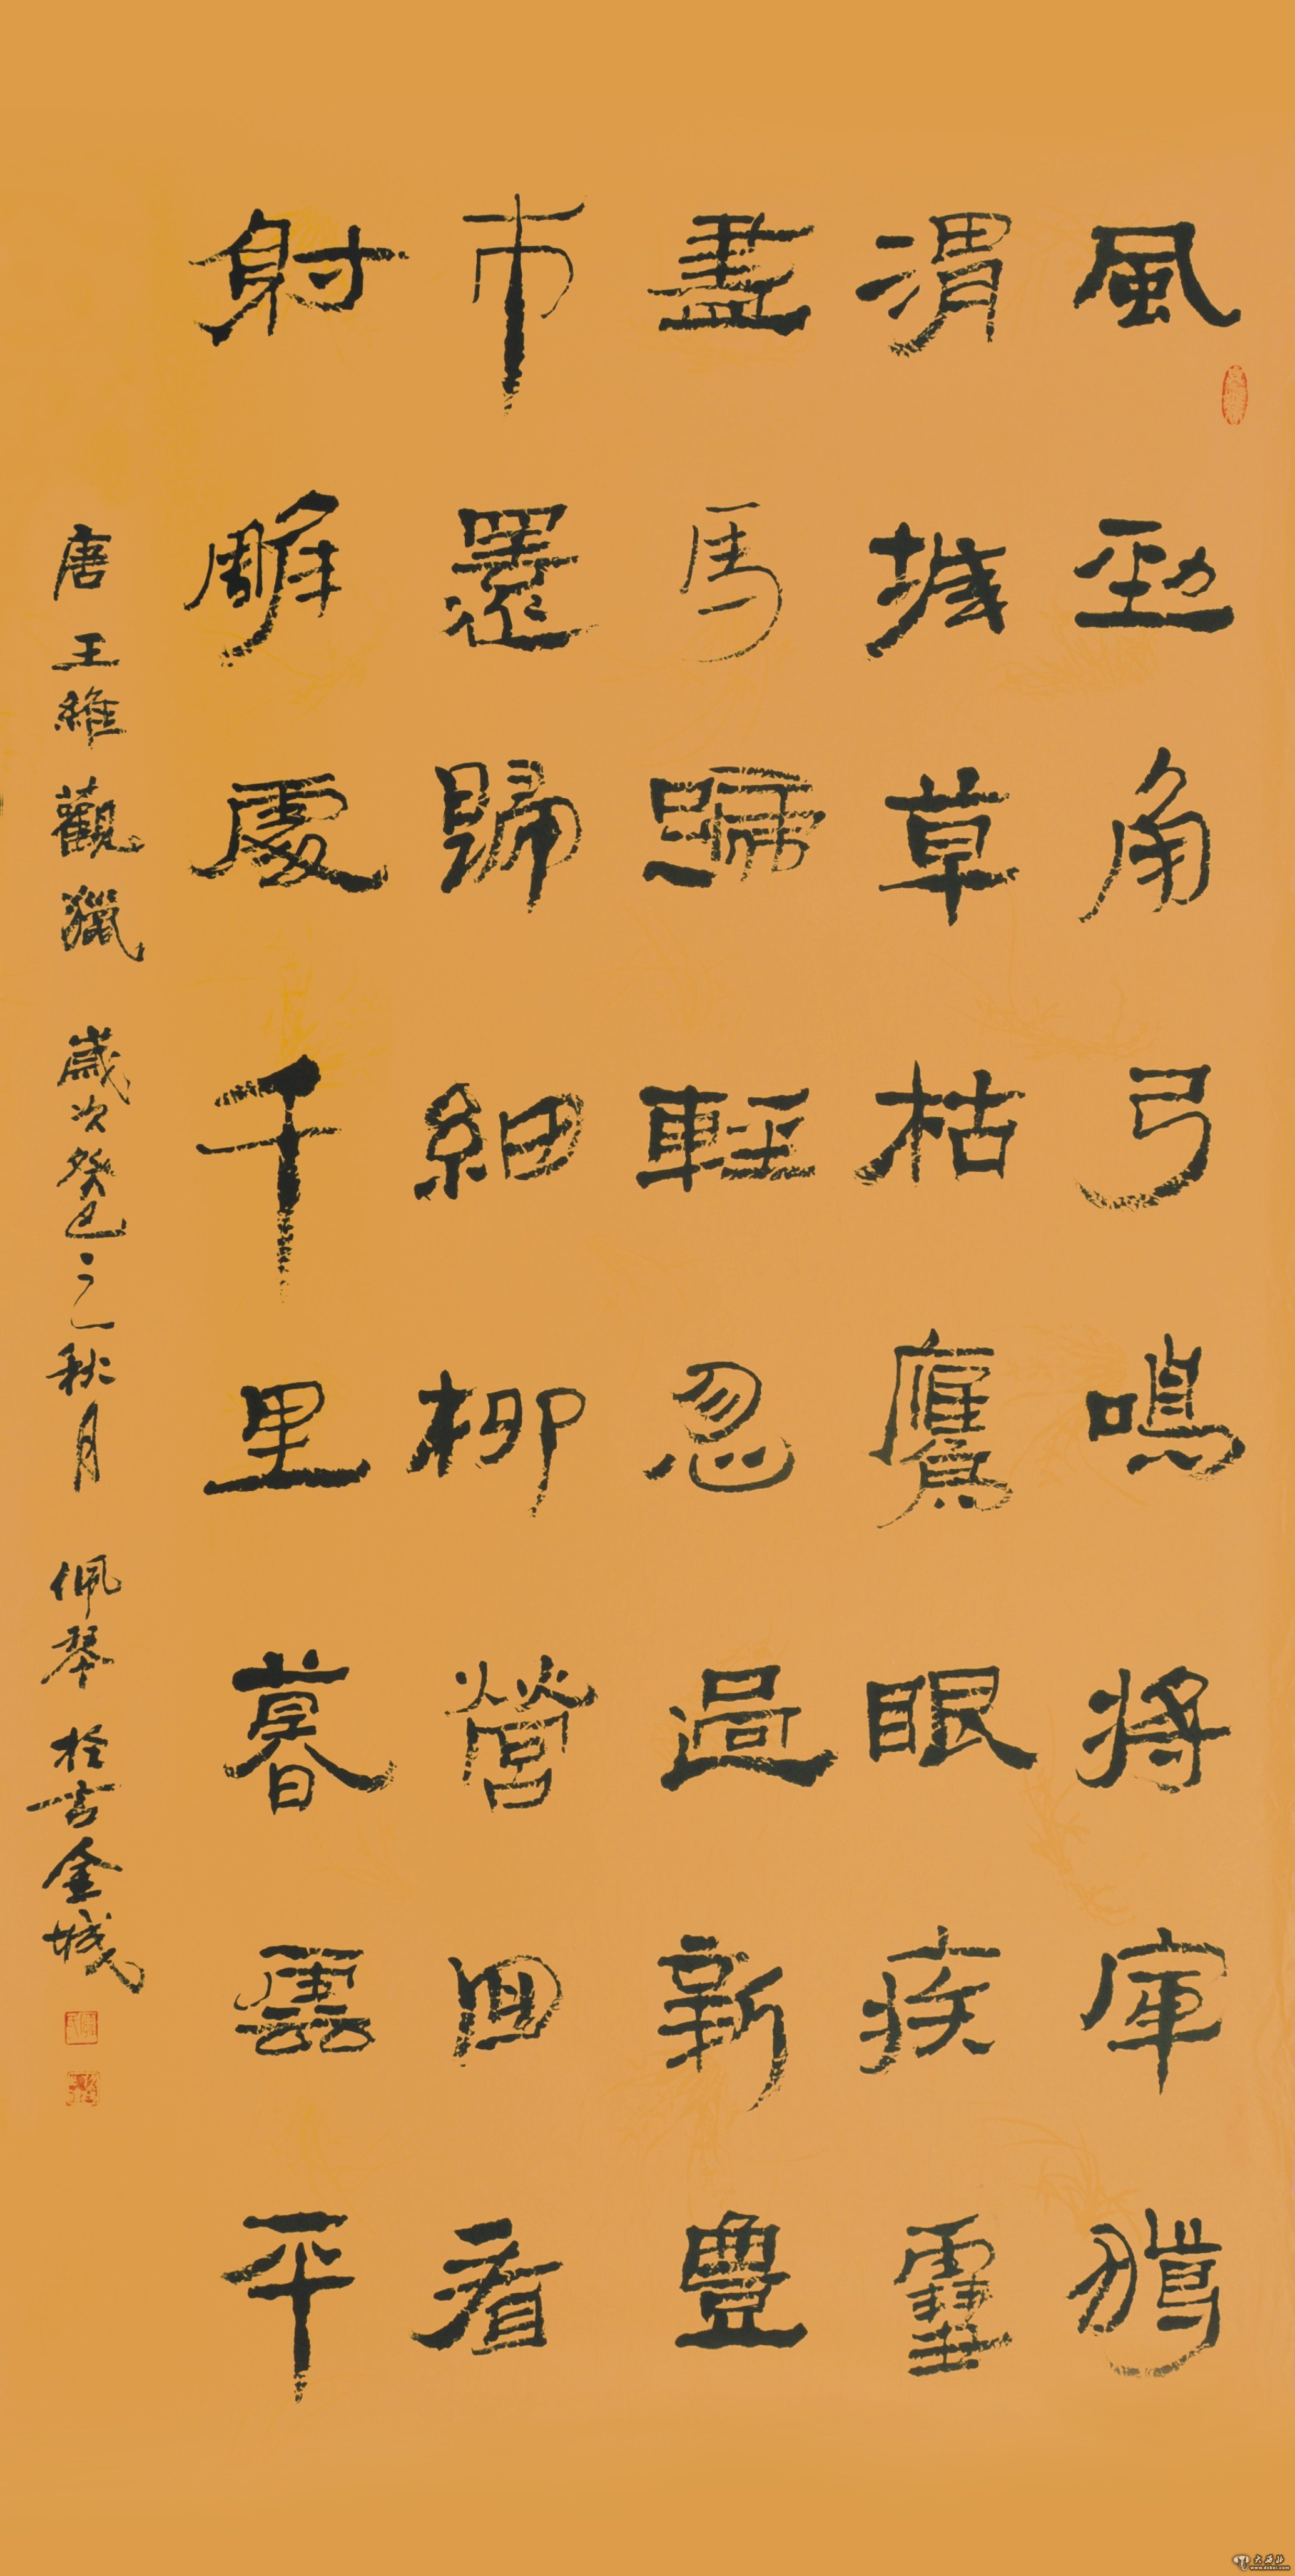 風勁角弓鳴將軍獵
渭城草枯鷹眼疾雪
盡馬蹄輕忽過新豐
市還歸細柳營回看
射雕處千里暮雲平
唐王維觀獵 歲次癸巳之秋月 佩琴於古金城